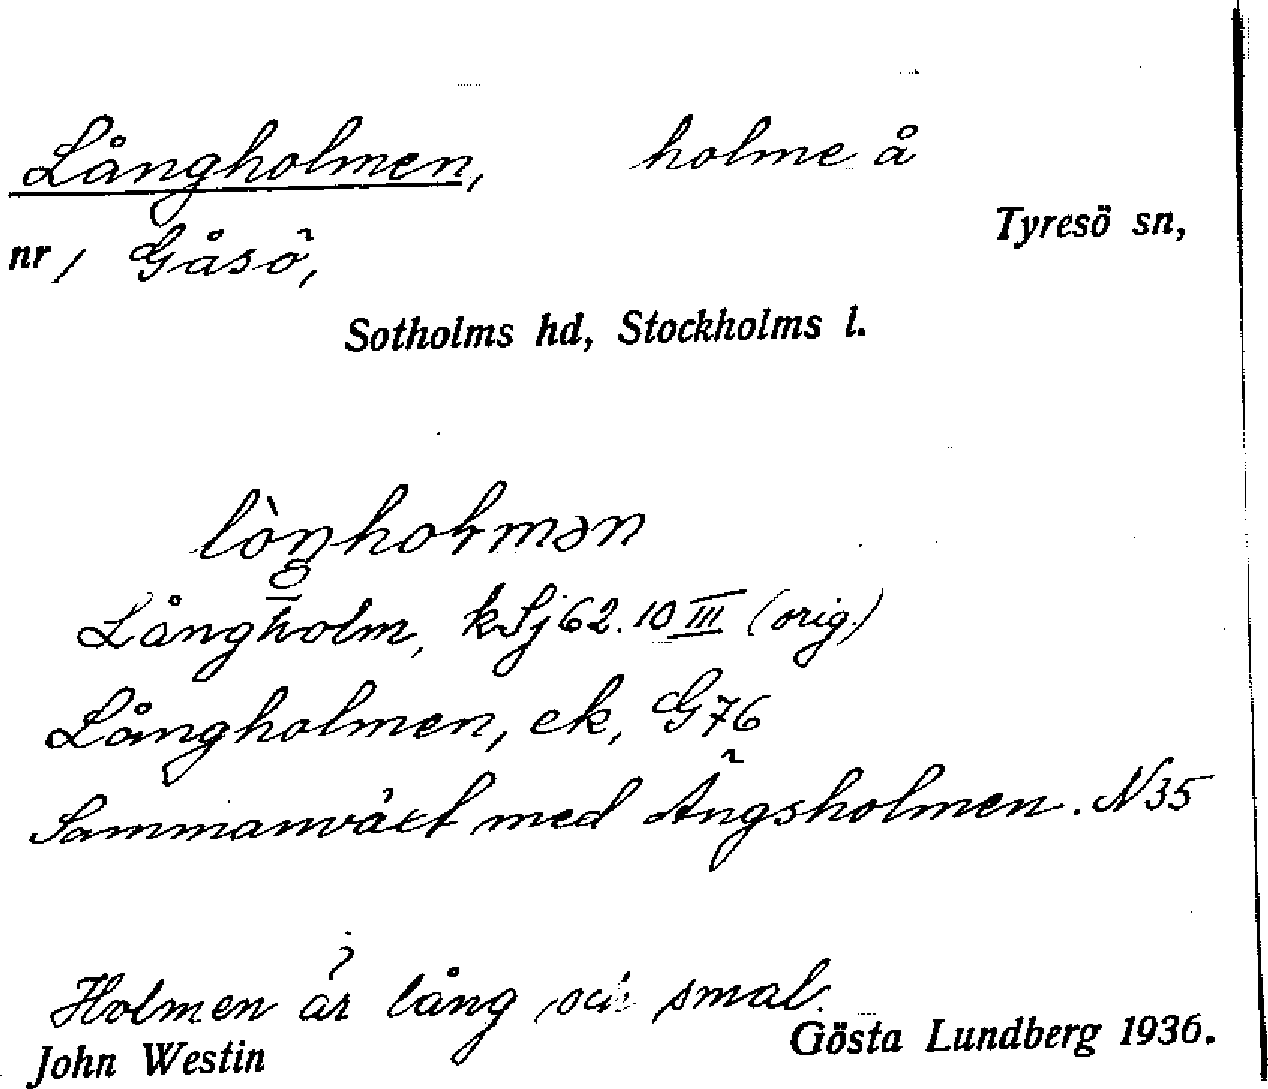 Långholmen, holme å
Tyresö sn,
nr 1 Gåsö,
Sotholms hd, Stockholms l.
lòŋholmən
Långholm, kSj 62.10 III (orig.)
Långholmen, ek, G76
Sammanväxt med Ängsholmen. N35
Holmen är lång och smal.
John Westin Gösta Lundberg 1936.